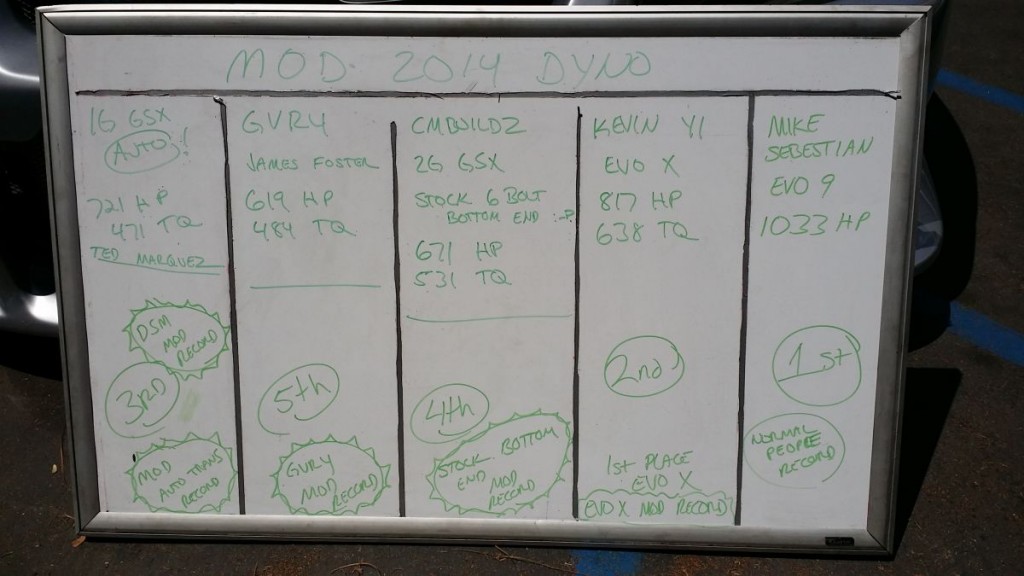 MOD 2014 DYNO
1G GSX
AUTO!
721 HP
471 TQ
TED MARQUEZ
DSM
MOD
RECORD
3RD
MOD
AUTO TRANS
RECORD
GVR4
JAMES FOSTER
619 HP
484 TQ
5th
GVR4
MOD
RECORD
CMBUILDZ
2G GSX
STOCK 6 BOLT
BOTTOM END :-P
671 HP
531 TQ
4th
STOCK BOTTOM
END MOD
RECORD
KEVIN YI
EVO X
817 HP
638 TQ
2nd
1st PLACE
EVO X
EVO X MOD RECORD
MIKE
SEBESTIAN
EVO 9
1033 HP
1st
NORMAL
PEOPLE
RECORD